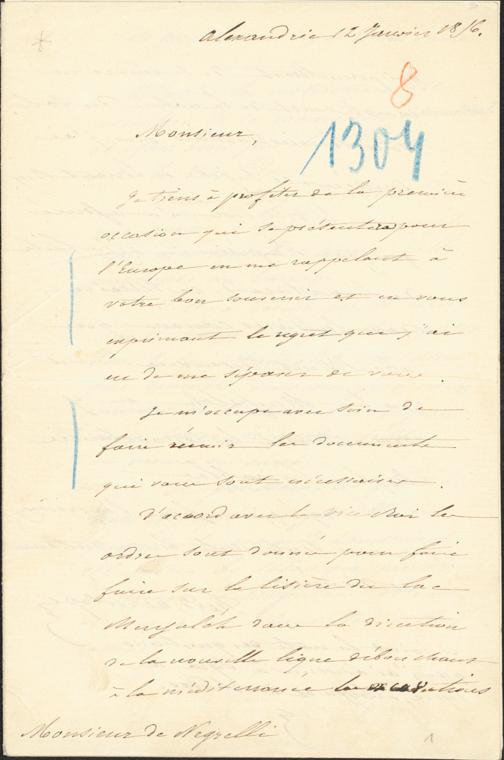 Alexandrie 12 Janvier 1856.
8
1304
Monsieur,
Je tiens à profiter de la première
occasion qui se présentera pour
l'Europe en me rappelant à
votre bon souvenir et en vous
exprimant le regret que j'ai
eu de me séparer de vous.
Je m'occupe avec soin de
faire réunir les documents
qui vous sont nécessaires.
D'accord avec le vice Roi les
ordres sont donnés pour faire
faire sur la lisière du lac
Menzaléh dans la direction
de la nouvelle ligne débouchant
à la méditerranée les
Monsieur de Negrelli
1